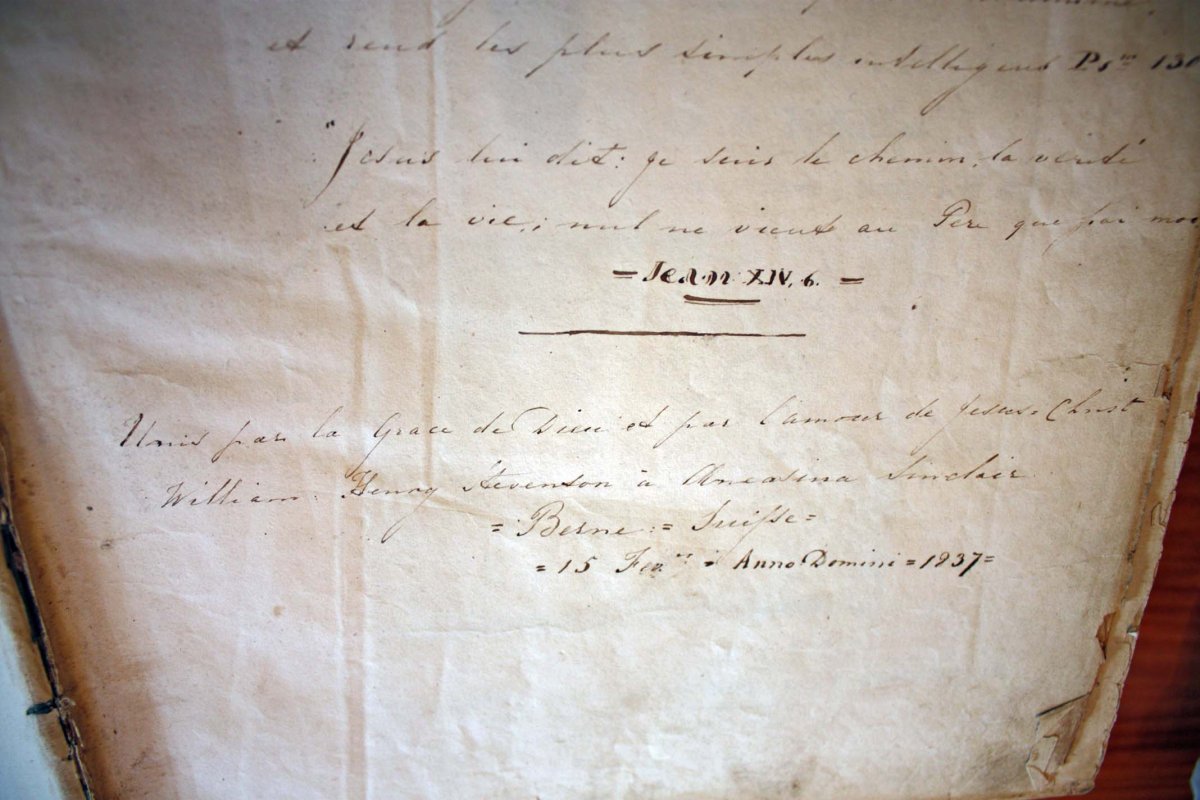 et rend les plus simples intelligens Psm 130
"Jesus lui dit: Je suis le chemin, la verité
et la vie,; nul ne vient au Pere que par moi
= Jean XIV. 6. =
Unis par la Grace de Dieu et par l'amour de Jesus-Christ
William Henry Stevenson à Sinclair
= Berne = Suisse =
= 15 Fev = Anno Domini = 1837 =